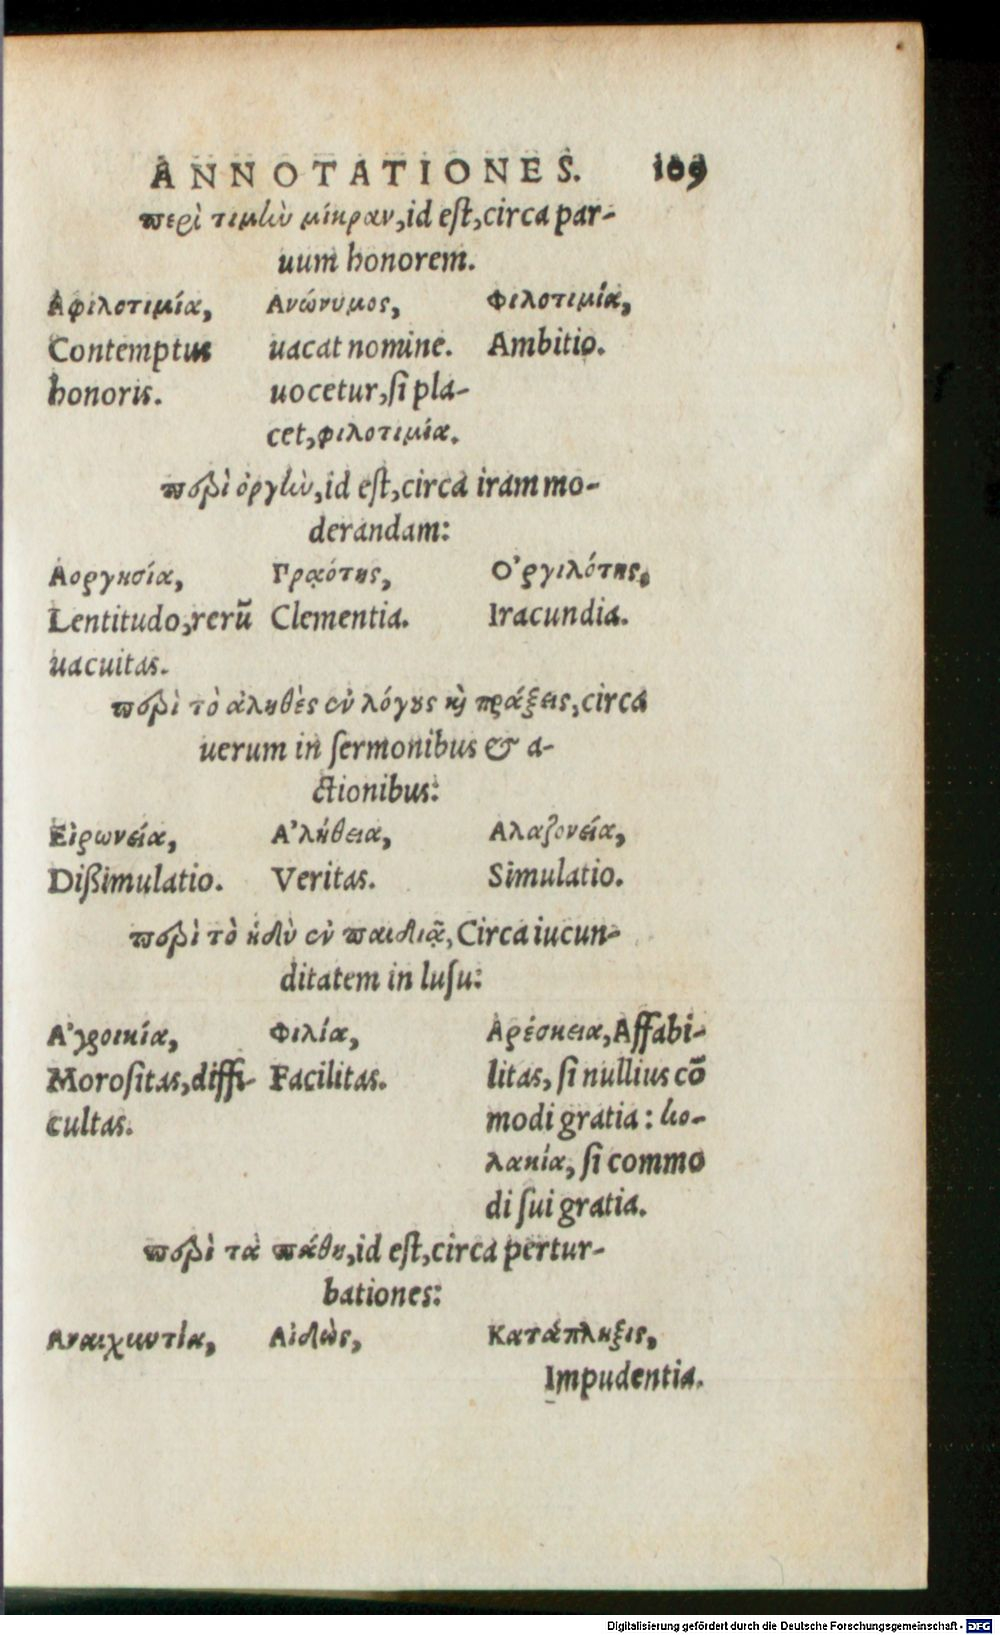 ANNOTATIONES. 109
περὶ τιμὴν μίκραν, id est, circa par-
uum honorem.
Αφιλοτιμία, Ανώνυμος, Φιλοτιμία,
Contemptus uacat nomine. Ambitio.
honoris. uocetur, si pla-
cet, φιλοτιμία.
περὶ ὀργὴν, id est, circa iram mo-
derandam:
Αοργησία, Γραότης, Ὀργιλότης,
Lentitudo, rerū Clementia. Iracundia.
uacuitas.
περὶ τὸ ἀληθὲς ἐν λόγοις καὶ πράξεις, circa
uerum in sermonibus & a-
ctionibus:
Εἰρωνεία, Ἀλήθεια, Αλαζονεία,
Dißimulatio. Veritas. Simulatio.
περὶ τὸ ἡδὺ ἐν παιδιᾷ, Circa iucun-
ditatem in lusu:
Ἀγροικία, Φιλία, Αρέσκεια, Affabi-
Morositas, diffi- Facilitas. litas, si nullius cō
cultas. modi gratia: κο-
λακία, si commo
di sui gratia.
περὶ τὰ πάθη, id est, circa pertur-
bationes:
Αναιχυντία, Αἰδὼς, Κατάπληξις,
Impudentia.
Digitalisierung gefördert durch die Deutsche Forschungsgemeinschaft - DFG